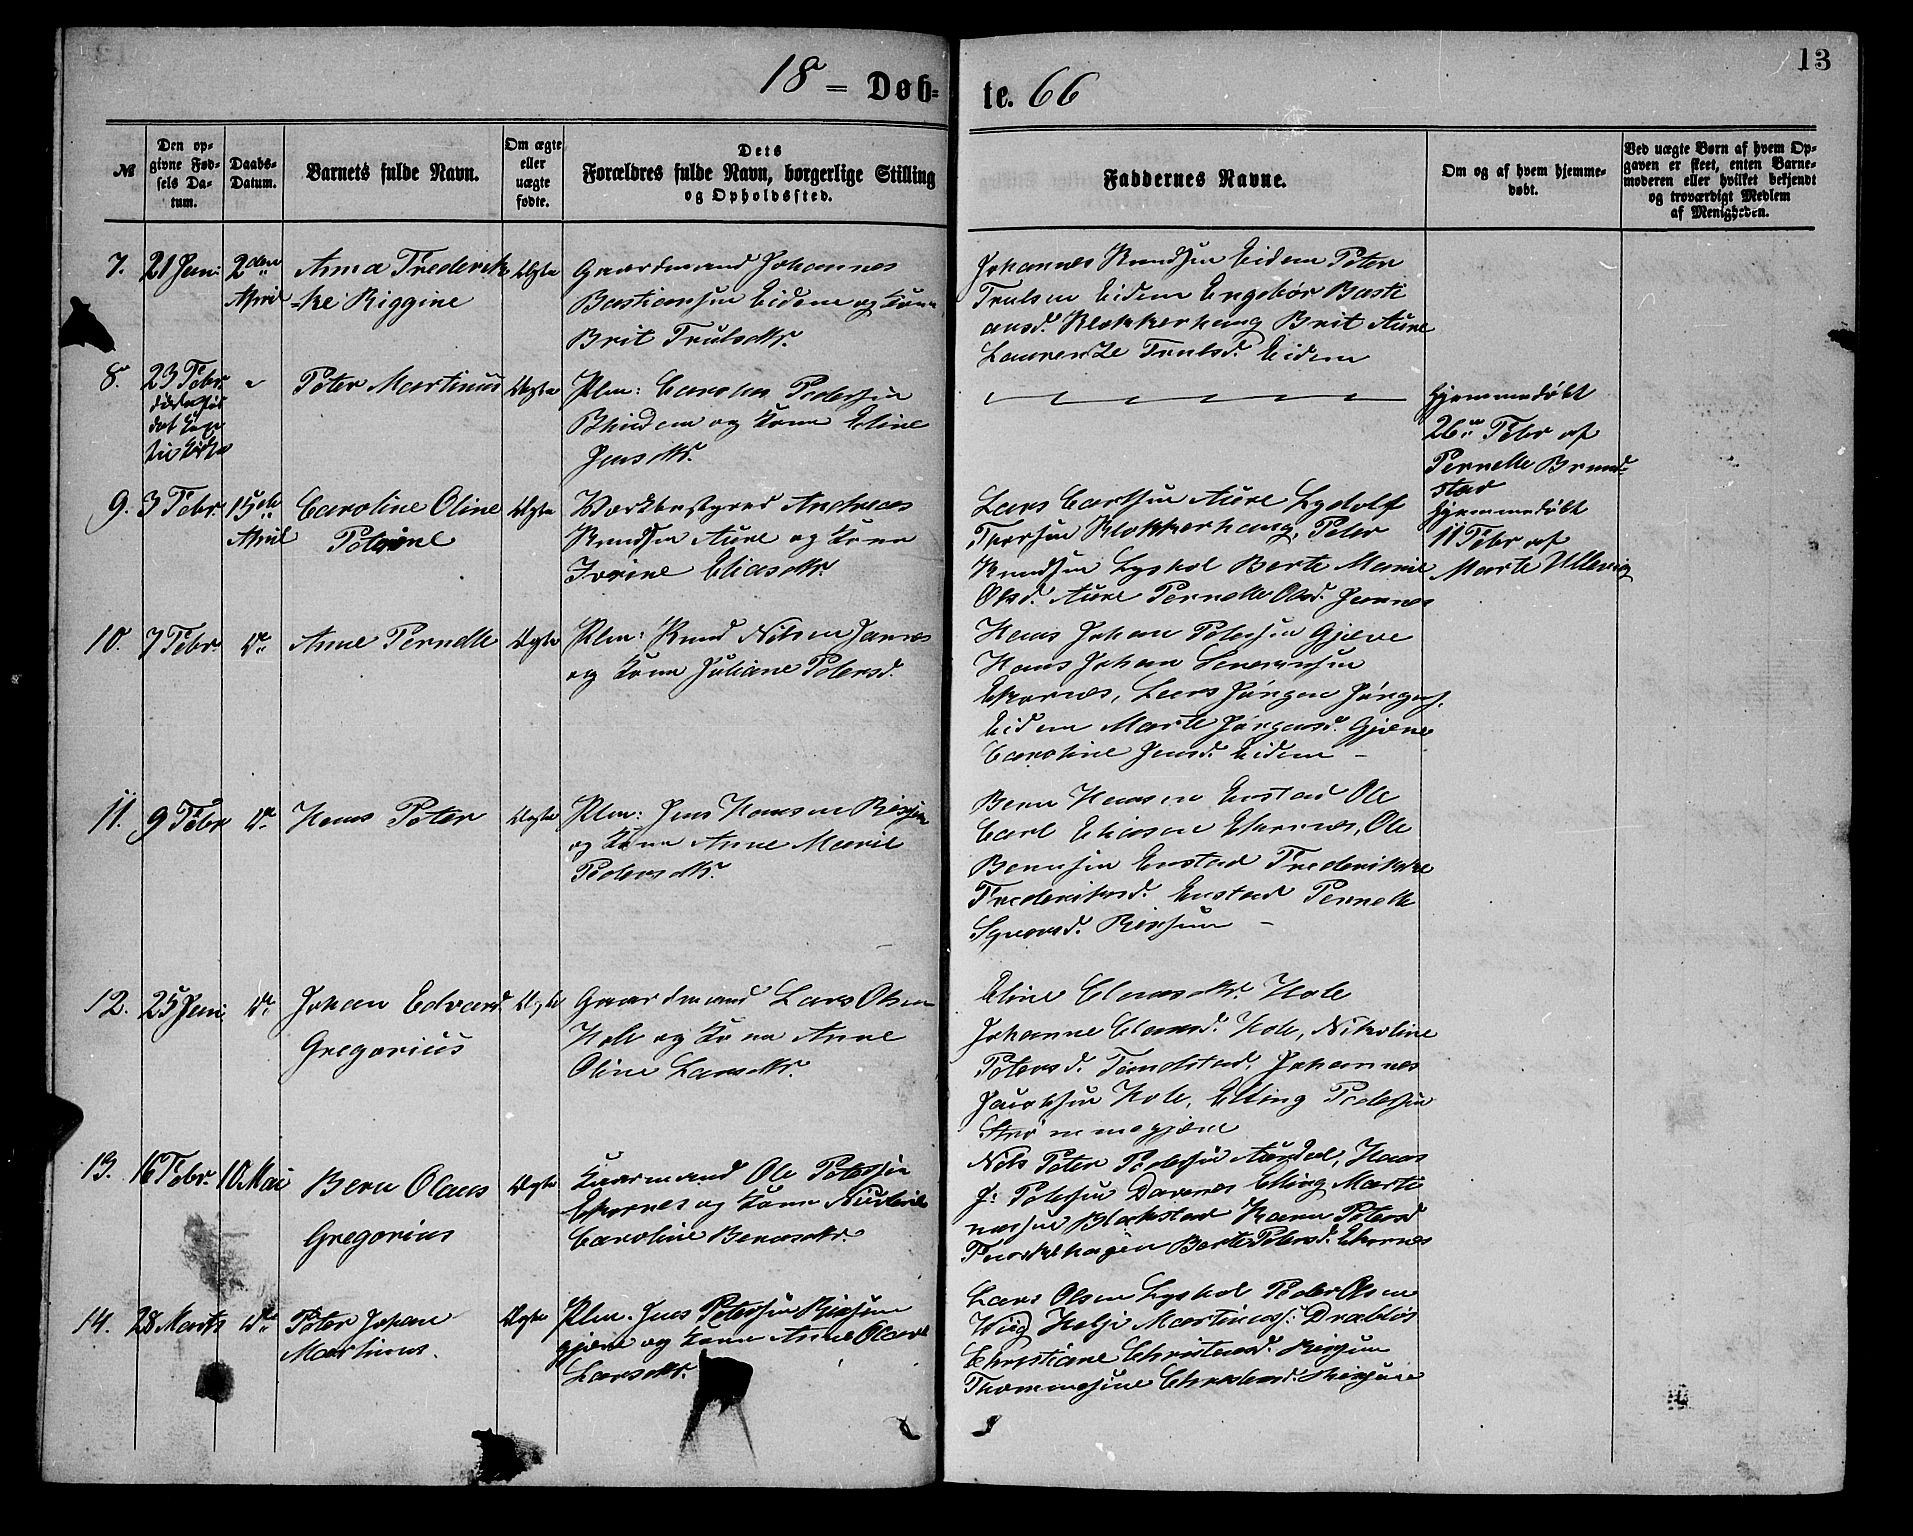 18 = Døb- te. 66
13
№
Den opgivne Fødsels Datum.
Daabs-Datum.
Barnets fulde Navn.
Om ægte eller uægte fødte.
Dets Forældres fulde Navn, borgerlige Stilling og Opholdssted.
Faddernes Navne.
Om og af hvem hjemmedøbt.
Ved uægte Børn af hvem Opgaven er skeet, enten Barnemoderen eller hvilket bekjendt og troværdigt Medlem af Menigheden.
7. 21 Jan: 2den April
Anna Frederik-
ke Riggine
Ægte
Gaardmand Johannes
Bastiansen Eidem og Kone
Brit Trulsdtr.
Johannes Knudsen Eidem Peter
Trulsen Eidem Engebør Basti
ansd. Klokkerhaug Brit Aure
Laurentze Trulsd. Eidem
8. 23 Febr.
Peter Martinus
Ægte
Plm: Carolus Pedersen
og Kone Eline
Jensdtr.
Hjemmedøbt
26de Febr af
Pernelle Brund-
stad
9. 3 Febr. 15de April
Caroline Oline
Petrine
Ægte
Andreas
Knudsen Aure og Kone
Ivrine Eliasdtr.
Lars Carlsen Aure Lydolf
Thorsen Klokkerhaug, Peter
Knudsen Lyshol Berte Marie
Olsd. Aure Pernelle Olsd. Jarnes
Hjemmedøbt
11 Febr af
Marte Ullevig
10. 7 Febr. Do
Anne Pernelle
Ægte
Plm: Knud Nilsen Jarnes
og Kone Juliane Petersd.
Hans Johan Petersen Gjære
Hans Johan Severinsen
Ekornes, Lars Jørgen Jørgens.
Eidem Marte Jørgensd. Gjære
Caroline Jensd. Eidem -
11. 9 Febr Do
Hans Peter
Ægte
Plm: Jens Hansen
og Kone Anne Marie
Pedersdtr.
Bern Hansen Enstad Ole
Carl Eliasen Ekornes, Ole
Bernsen Enstad Frederikke
Frederiksd. Enstad Pernelle
Syversd.
12. 25 Jan: Do
Johan Edvard
Gregorius
Ægte
Gaardmand Lars Olsen
Hole og Kone Anne
Oline Larsdtr.
Eline Clausdtr. Hole
Johanne Clausd. Hole, Nikoline
Petersd. Tandstad, Johannes
Jacobsen Hole, Elling Pedersen
Strømmegjære
13. 16 Febr. 10 Mai
Bern Olaus
Gregorius
Ægte
Ole Petersen
Ekornes og Kone
Caroline Bernsdtr.
Nils Peter Pedersen Aurdal, Hans
J: Petersen Elling Marti
nussen Blakstad Karn Petersd
Berte Petersd. Ekornes
14. 28 Marts Do
Peter Johan
Martinus.
Ægte
Plm. Jens Petersen
gjære og Kone Anne Olave
Larsdtr.
Lars Olsen Lyshol Peder Olsen
Wiig Helje Martinuss: Drabløs
Christiane Christensd.
Thomasine Christensd.